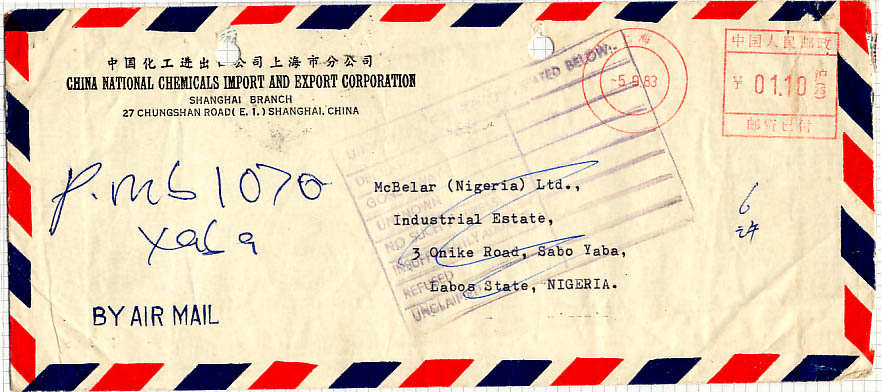 中国化工进出口公司上海市分公司
CHINA NATIONAL CHEMICALS IMPORT AND EXPORT CORPORATION
SHANGHAI BRANCH
27 CHUNGSHAN ROAD( E. 1.) SHANGHAI, CHINA
上海
-5.9.83
中国人民邮政
¥ 01.10
沪
邮资已付
BELOW
GONE AWAY
UNKNOWN
NO SUCH
REFUSED
UNCLAIMED
McBelar (Nigeria) Ltd.,
Industrial Estate,
3 Onike Road, Sabo Yaba,
Labos State, NIGERIA.
P.MB 1070
Yaba
6
BY AIR MAIL